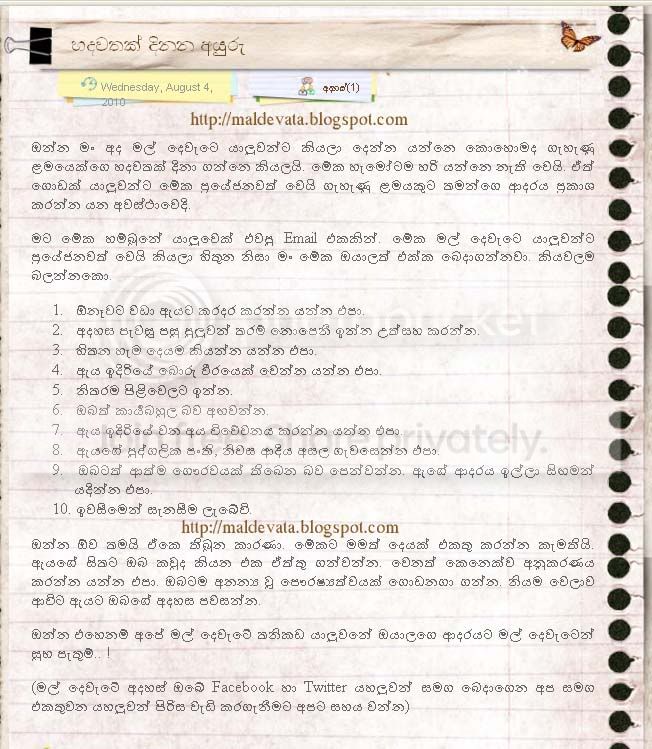 හදවතක් දිනන අයුරු
Wednesday, August 4,
2010
අදහස්(1)
http://maldevata.blogspot.com
ඔන්න මං අද මල් දෙවැට යාලුවන්ට කියලා දෙන්න යන්නෙ කොහොමද ගැහැණු
ළමයෙක්ගෙ හදවතක් දිනා ගන්නෙ කියලයි. මේක හැමෝටම හරි යන්නෙ නැති වෙයි. ඒත්
ගොඩක් යාලුවන්ට මේක ප්‍රයේජනවත් වෙයි ගැහැණු ළමයකුට තමන්ගෙ ආදරය ප්‍රකාශ
කරන්න යන අවස්ථාවෙදි.
මට මේක හම්බුනේ යාලුවෙක් එවපු Email එකකින්. මේක මල් දෙවැටෙ යාලුවන්ට
ප්‍රයේජනවත් වෙයි කියලා හිතුන නිසා මං මේක ඔයාලත් එක්ක බෙදාගන්නවා. කියවලම
බලන්නකො.
1. ඕනෑවට වඩා ඇයට කරදර කරන්න යන්න එපා.
2. අදහස පැවසූ පසු පුලුවන් තරම් නොපෙනී ඉන්න උත්සහ කරන්න.
3. හිතන හැම දෙයම කියන්න යන්න එපා.
4. ඇය ඉදිරියේ බොරු වීරයෙක් වෙන්න යන්න එපා.
5. නිතරම පිළිවෙලට ඉන්න.
6. ඔබත් කාර්යබහුල බව අඟවන්න.
7. ඇය ඉදිරියේ වන අය විවේචනය කරන්න යන්න එපා.
8. ඇයගේ පුද්ගලික පංති, නිවස ආදිය අසල ගැවසෙන්න එපා.
9. ඔබටත් ආත්ම ගෞරවයක් තිබෙන බව පෙන්වන්න. ඇගේ ආදරය ඉල්ලා සිඟමන්
යදින්න එපා.
10. ඉවසීමෙන් සැනසීම ලැබේවි.
http://maldevata.blogspot.com
ඔන්න ඕව තමයි ඒකෙ තිබුන කාරණා. මේකට මමත් දෙයක් එකතු කරන්න කැමතියි.
ඇයගේ සිතට ඔබ කවුද කියන එක ඒත්තු ගන්වන්න. වෙනත් කෙනෙක්ව අනුකරණය
කරන්න යන්න එපා. ඔබටම අනන්‍ය වූ පෞරෂ්‍යත්වයක් ගොඩනගා ගන්න. නියම වෙලාව
ආවිට ඇයට ඔබගේ අදහස පවසන්න.
ඔන්න එහෙනම් අපේ මල් දෙවැටේ තනිකඩ යාලුවනේ ඔයාලගෙ ආදරයට මල් දෙවැටෙන්
සුභ පැතුම්.. !
(මල් දෙවැටේ අදහස් ඔබේ Facebook හා Twitter යහලුවන් සමග බෙදාගෙන අප සමග
එකතුවන යහලුවන් පිරිස වැඩි කරගැනීමට අපට සහය වන්න)